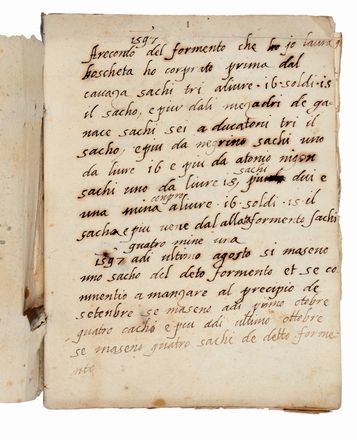 1
1597
Arecordo del formento che ho jo laura
boscheta ho corprato prima dal
cavaza sachi tri alivre · 16 · soldi · 15
il sacho, e piu dali mezadri de ga
nace sachi sei a ducatoni tri il
sacho, e piu da negrino sachi uno
da livre 16 e piu da atonio
sachi uno da livre 15, dui e
sachi
una mina alivre · 16 · soldi · 15 · il
conpro
sacho e piu vene dal formento sachi
quatro mine una
1597 adi ultimo agosto si maseno
uno sacho del deto formento et se co
mnentio a manjare al precipio de
setenbre se maseno adi primo otobre
quatro cachi e piu adi ultimo ottobre
se maseno quatro sachi de detto forme
nto